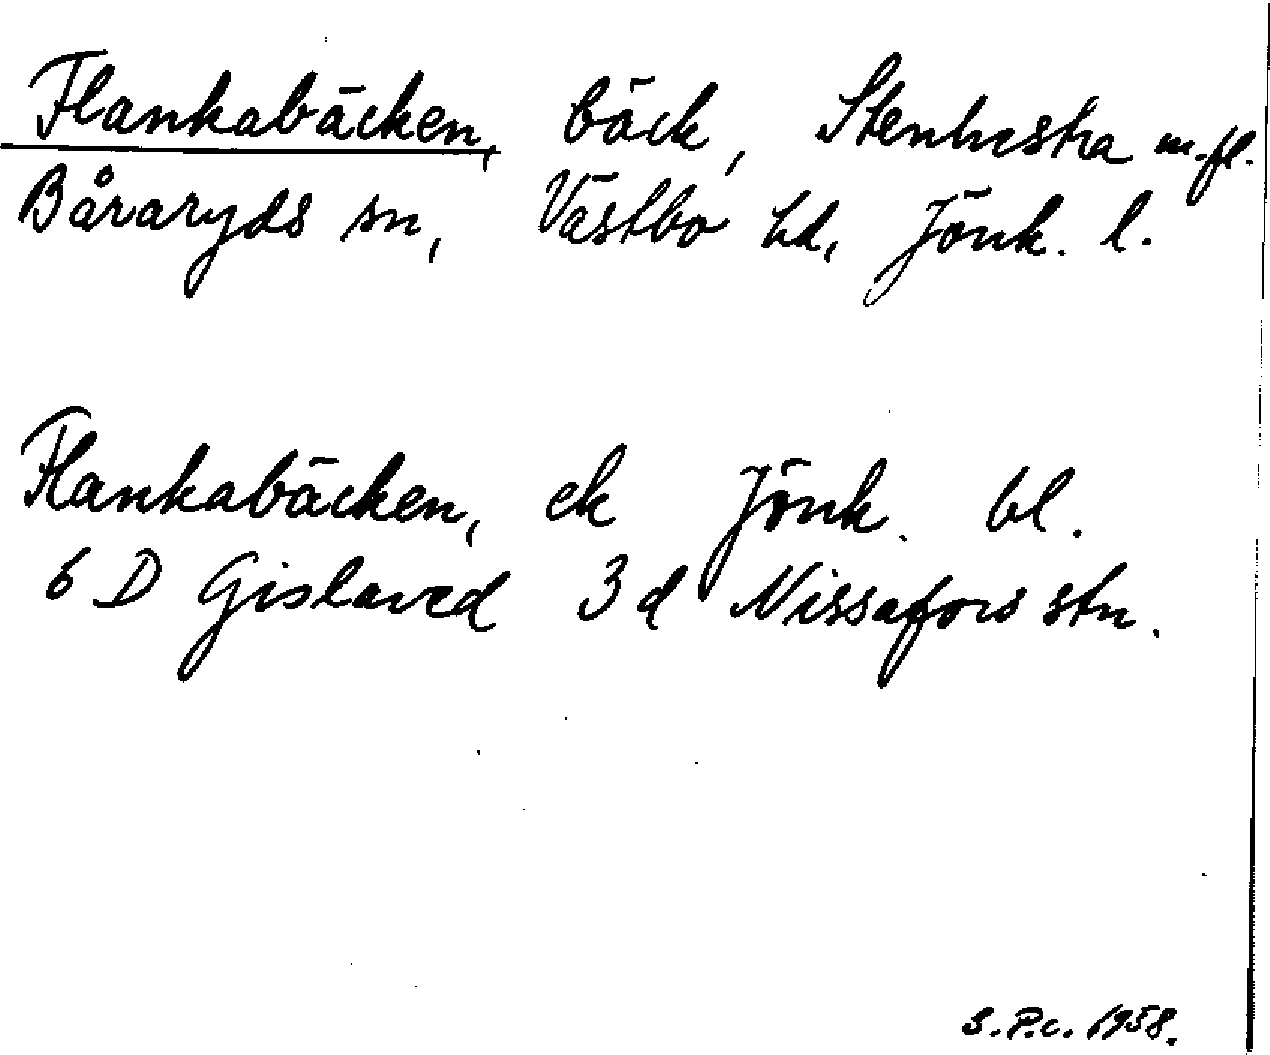 Flankabäcken, bäck, Stenhestra m.fl.
Båraryds sn, Västbo hd, Jönk. l.
Flankabäcken, ek Jönk. bl.
6 D Gislaved 3 d Nissafors stn.
S.P.c. 1958.